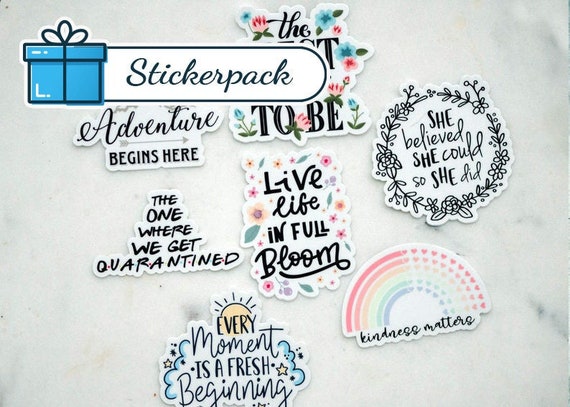 Stickerpack
the
TO BE
Adventure
BEGINS HERE
SHE
believed
SHE COULD
so SHE did
THE
ONE
WHERE
WE GET
QUARANTINED
LIVE
life
IN FULL
Bloom
kindness matters
EVERY
Moment
IS A FRESH
Beginning